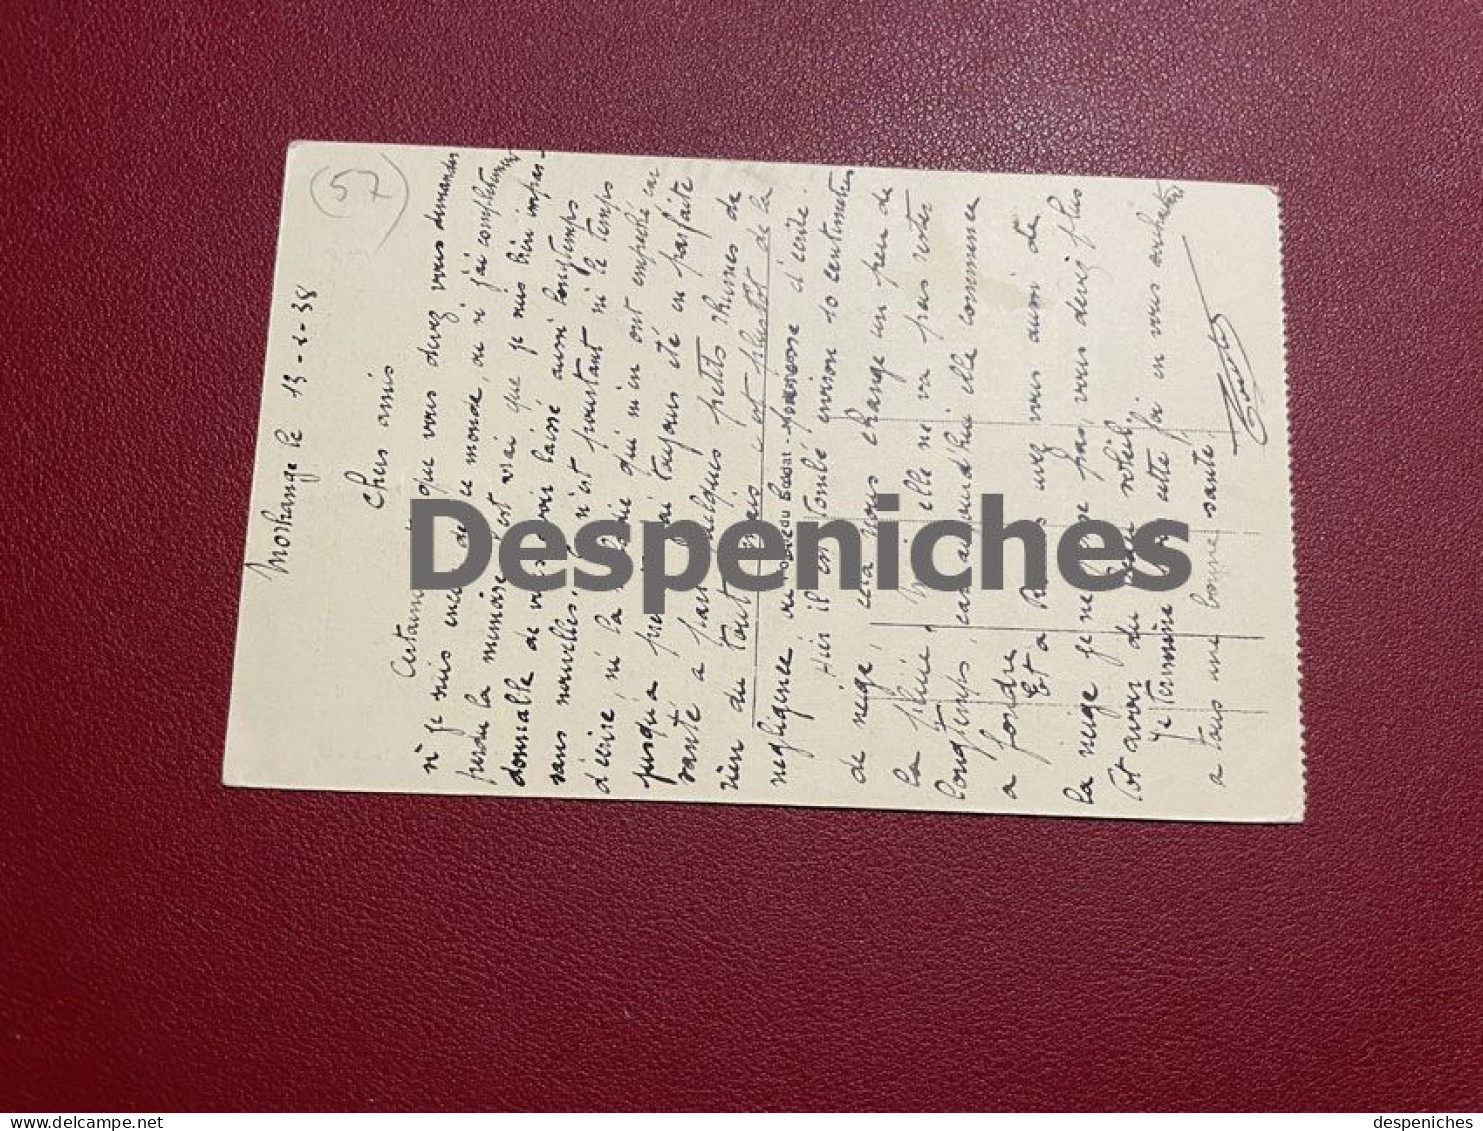 (57)
Morhange le 13-2-38
Chers amis
que vous devez vous demander
si je suis de ce monde, ou si j'ai complètement
perdu la mémoire, est vrai que je suis bien impar-
donnable de vous avoir laissé aussi longtemps
sans nouvelles, n'est pourtant ni le temps
d'ecrire, ni la qui m'en ont empeché car
jusqu'a toujours été en parfaite
santé a part quelques petits rhumes de
rien du tout mais c'est plutôt de la
negligence d'ecrire.
au du Soldat - MORHANGE
Hier il en tombé environ 10 centimetres
de neige, cela nous change un peu de
la pluie, elle ne va pas rester
longtemps, car aujourd'hui elle commence
a fondre
Et a avez vous aussi de
la neige je ne pense pas, vous devez plus
tot avoir du beau soleil.
Je termine cette fois en vous souhaitant
a tous une bonne santé.
Despeniches
delcampe.net
despeniches